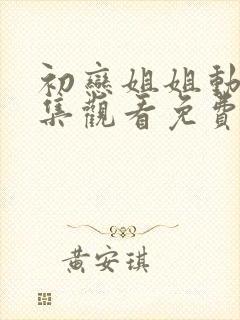 初戀姐姐動
集觀看免費
黃安琪